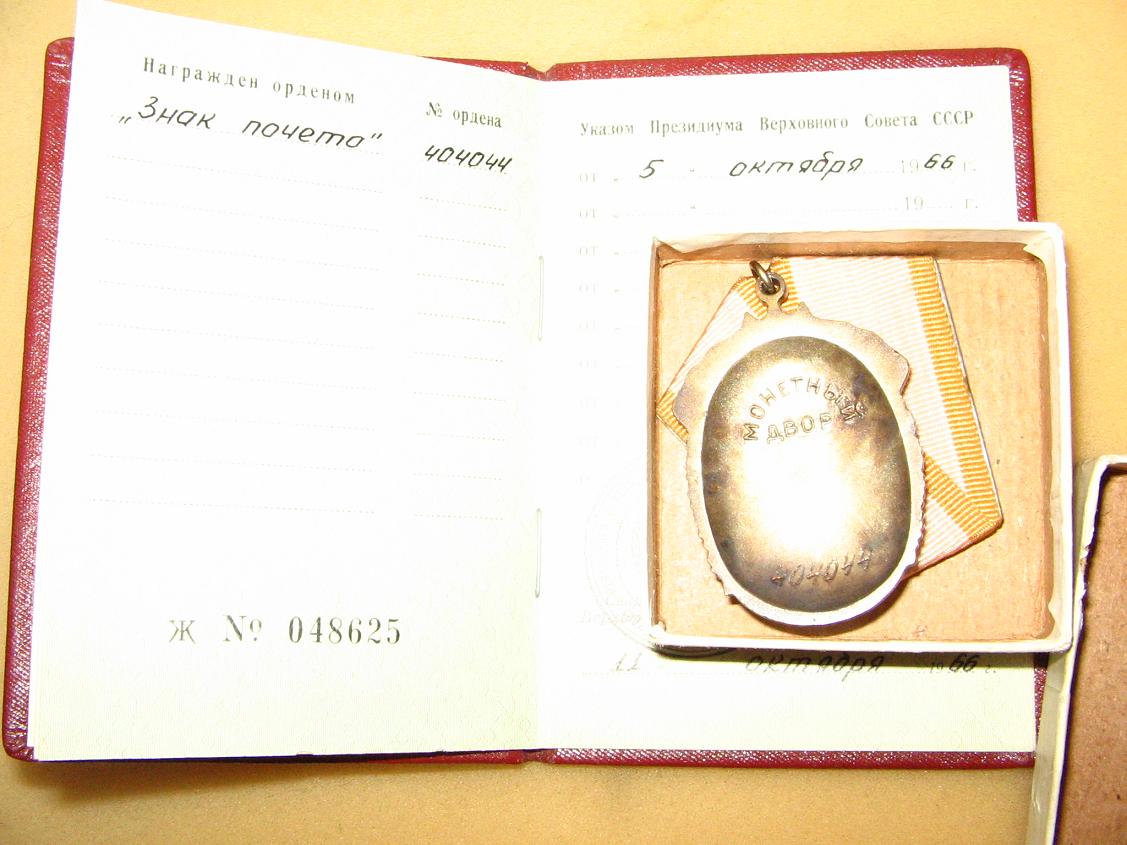 Награжден орденом
№ ордена
„Знак почета"
404044
Ж № 048625
Указом Президиума Верховного Совета СССР
от „ 5 " октября 1966 г.
от „ " 19 г.
от „
от „
от
от
МОНЕТНЫЙ
ДВОР
404044
11 октября 1966 г.